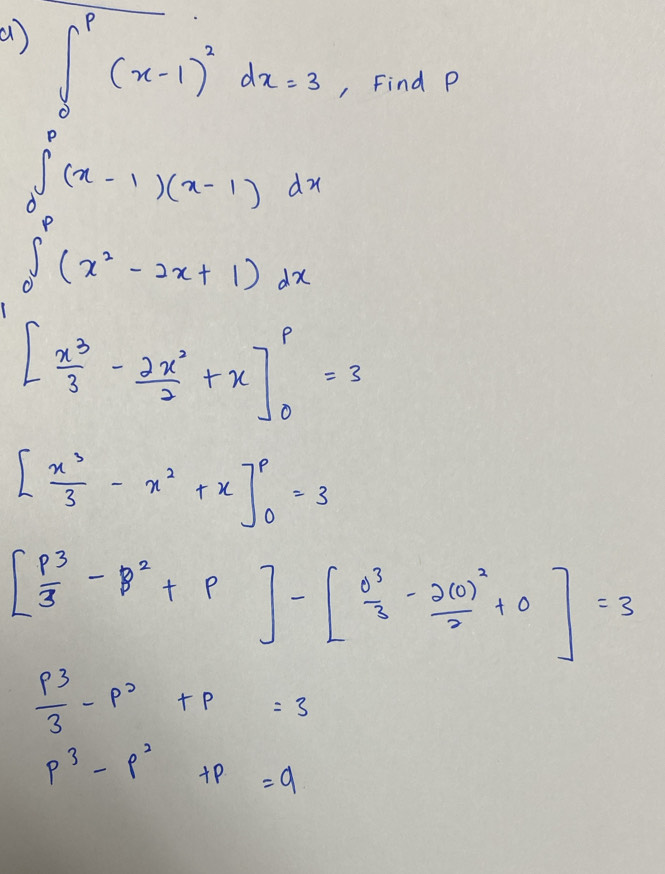 a) ∫₀ᴾ (x-1)² dx = 3 , Find P
∫₀ᴾ (x - 1)(x - 1) dx
∫₀ᴾ (x² - 2x + 1) dx
[x³/3 - 2x²/2 + x]₀ᴾ = 3
[x³/3 - x² + x]₀ᴾ = 3
[P³/3 - P² + P] - [0³/3 - 2(0)²/2 + 0] = 3
P³/3 - P² + P = 3
P³ - P² + P = 9